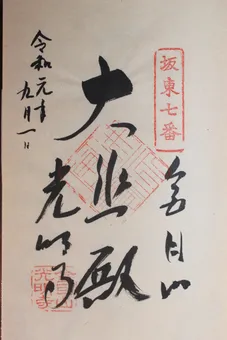 坂東七番
金目山
大悲殿
令和元年
九月一日
光明寺
金目山
光明寺